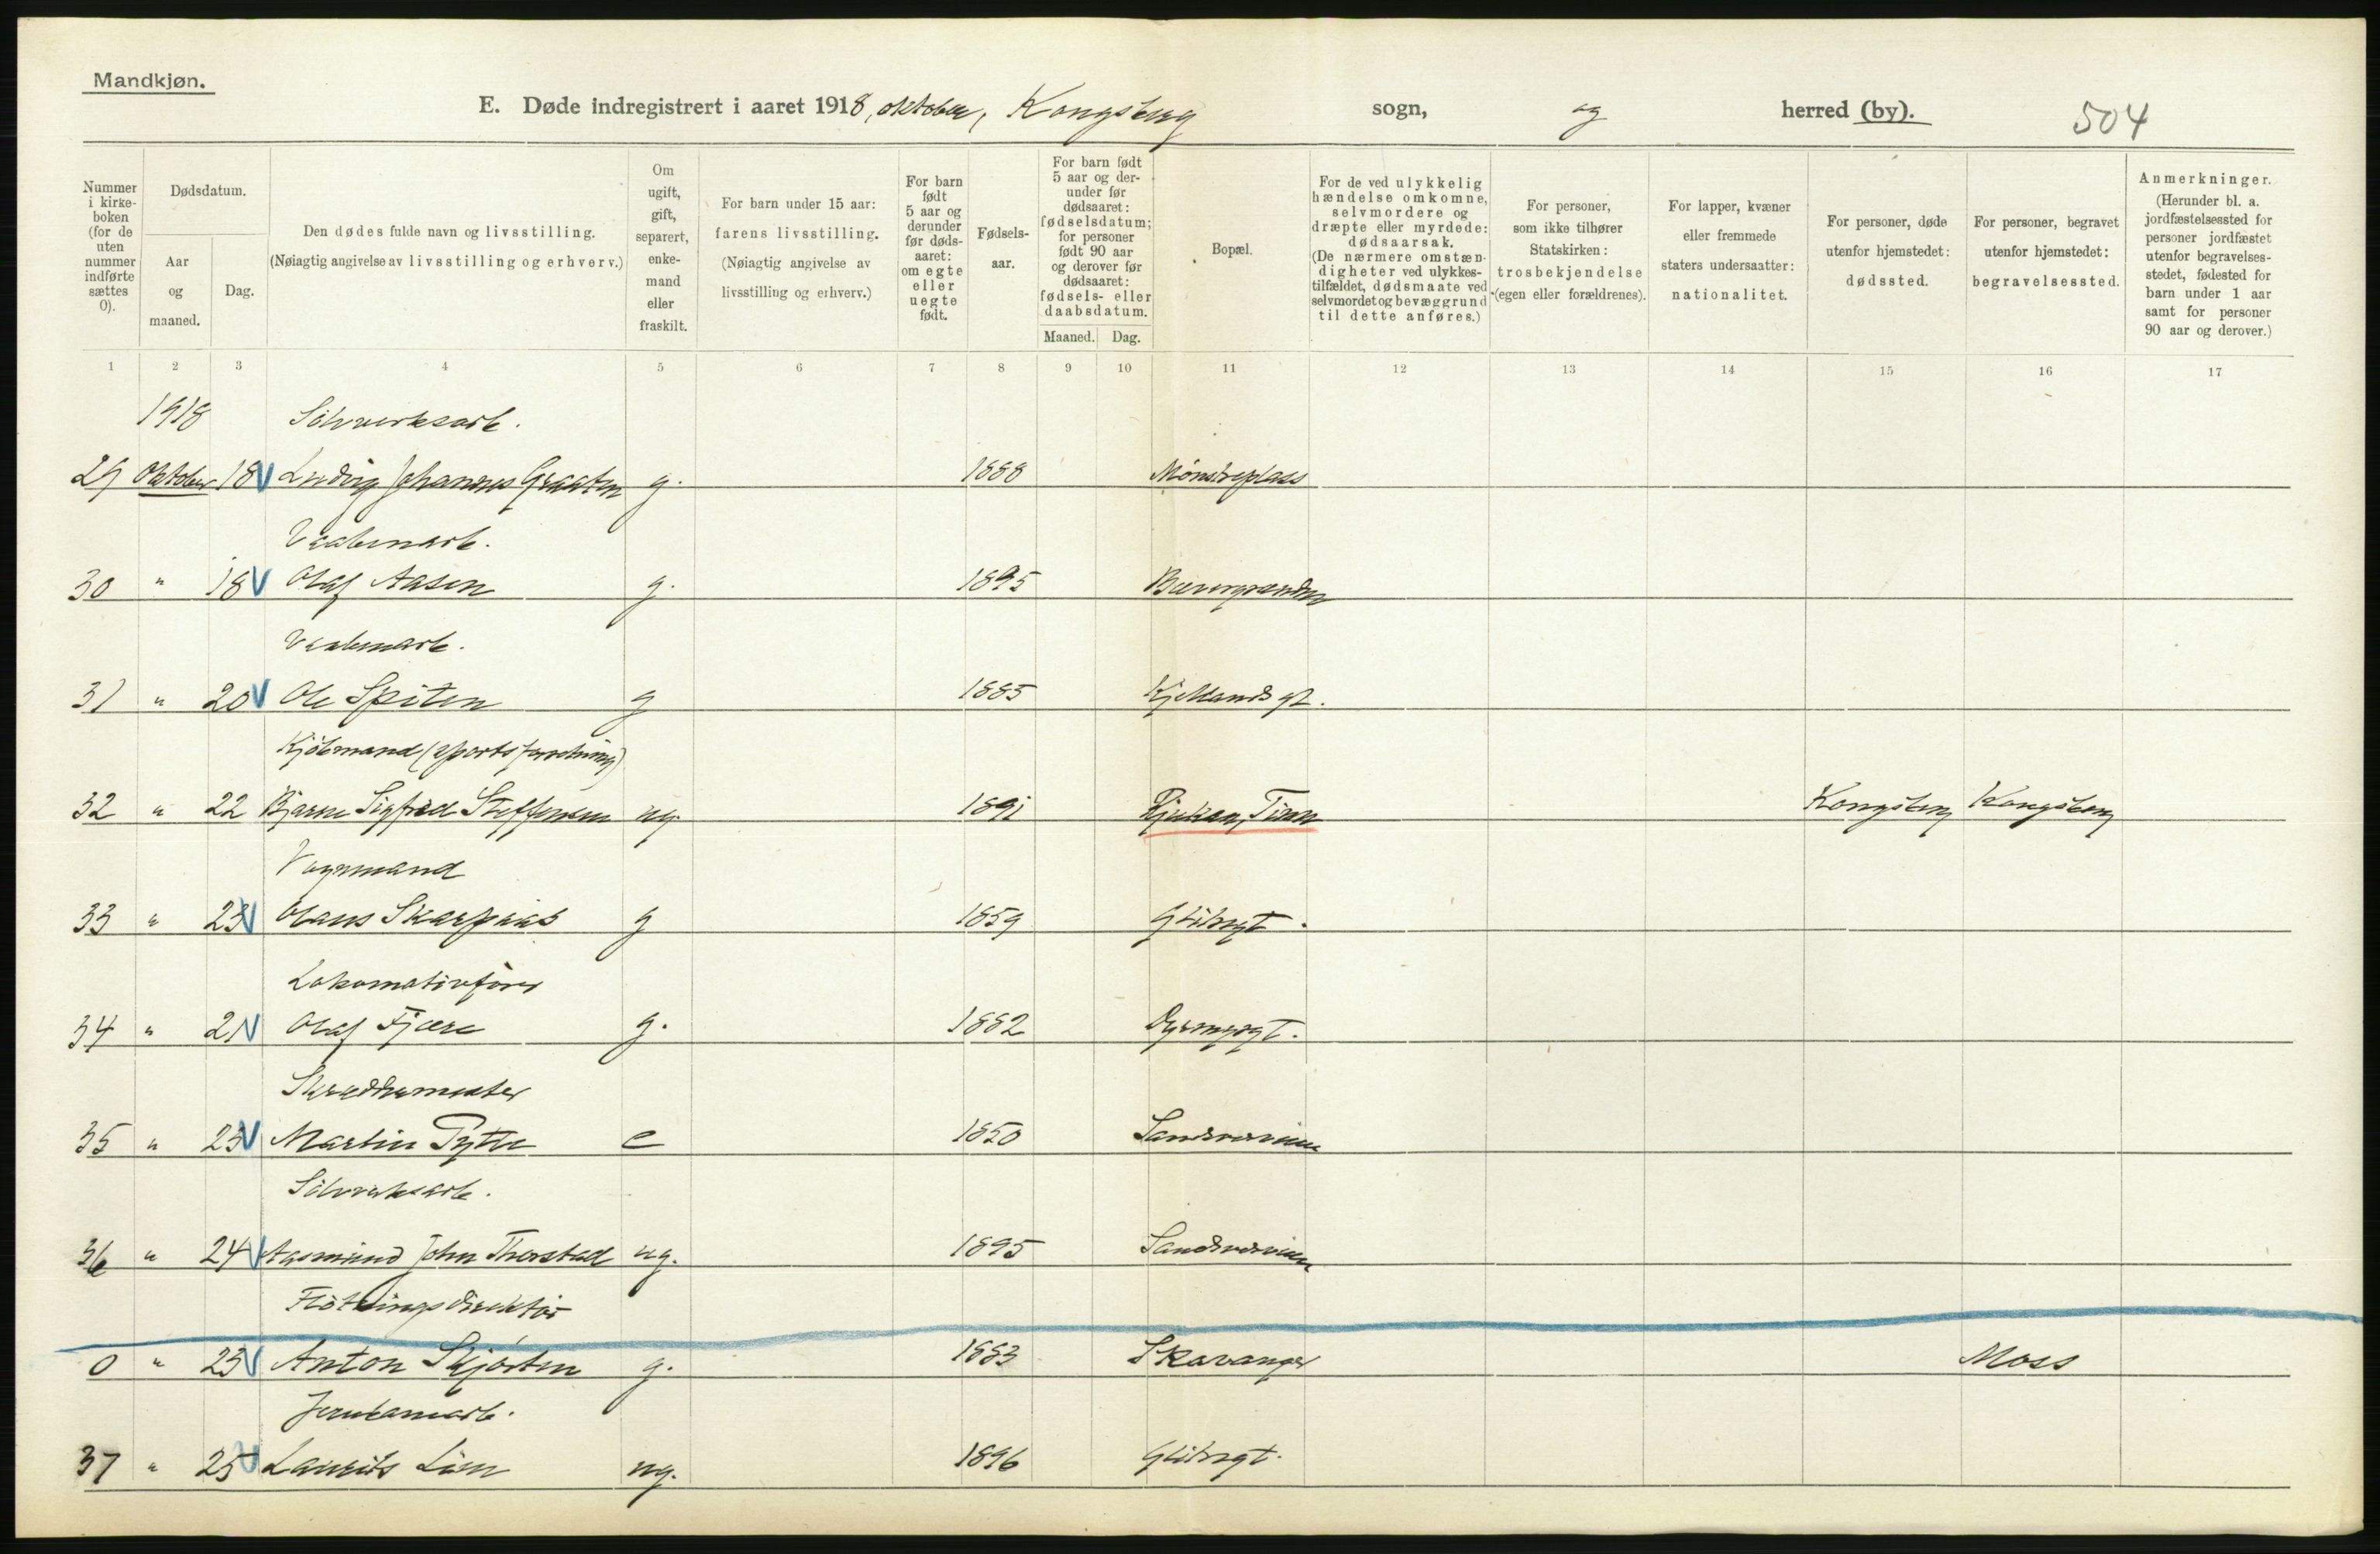 Mandkjøn.
E. Døde indregistrert i aaret 1918, oktober, Kongsberg sogn, og herred (by). 504
Nummer i kirke- boken (for de uten nummer indførte sættes 0).
Dødsdatum.
Aar og maaned.
Dag.
Den dødes fulde navn og livsstilling.
(Nøiagtig angivelse av livsstilling og erhverv.)
Om ugift, gift, separert, enke- mand eller fraskilt.
For barn under 15 aar: farens livsstilling.
(Nøiagtig angivelse av livsstilling og erhverv.)
For barn født 5 aar og derunder før døds- aaret: om egte eller uegte født.
Fødsels- aar.
For barn født 5 aar og der- under før dødsaaret: fødselsdatum; for personer født 90 aar og derover før dødsaaret: fødsels- eller daabsdatum.
Maaned. Dag.
Bopæl.
For de ved ulykkelig hændelse omkomne, selvmordere og dræpte eller myrdede: dødsaarsak.
(De nærmere omstæn- digheter ved ulykkes- tilfældet, dødsmaate ved selvmordet og bevæggrund til dette anføres.)
For personer, som ikke tilhører Statskirken: trosbekjendelse (egen eller forældrenes).
For lapper, kvæner eller fremmede staters undersaatter: nationalitet.
For personer, døde utenfor hjemstedet: dødssted.
For personer, begravet utenfor hjemstedet: begravelsessted.
Anmerkninger.
(Herunder bl. a. jordfæstelsessted for personer jordfæstet utenfor begravelses- stedet, fødested for barn under 1 aar samt for personer 90 aar og derover.)
1 2 3 4 5 6 7 8 9 10 11 12 13 14 15 16 17
1918 Sölvverksarb.
29 Oktober 18 V Ludvig Johannes Graaten g. 1888 Mønstreplass
Vaabenarb.
30 " 18 V Olaf Aasen g. 1895
Vaabenarb.
31 " 20 V Ole Spiten g 1885 Kjellands gt.
Kjöbmand (sportsforretning)
32 " 22 Bjarne Sigfred Steffensen ug. 1891 Rjukan, Tinn Kongsberg Kongsberg
Vognmand
33 " 23 V Olaus Skarpnæs g 1859 Glitregt.
Lokomotivförer
34 " 21 V Olaf Fjære g. 1882 Dyrmyrgt.
Skræddermester
35 " 23 V Martin Pytte e 1850 Sandsværveien
Sölvverksarb.
36 " 24 V Aasmund John Thorstad ug. 1895 Sandsværveien
Flötningsdirektör
0 " 23 V Anton Skjørten g. 1883 Stavanger Moss
Jernbanearb.
37 " 25 V Laurits Lien ug. 1896 Glitregt.